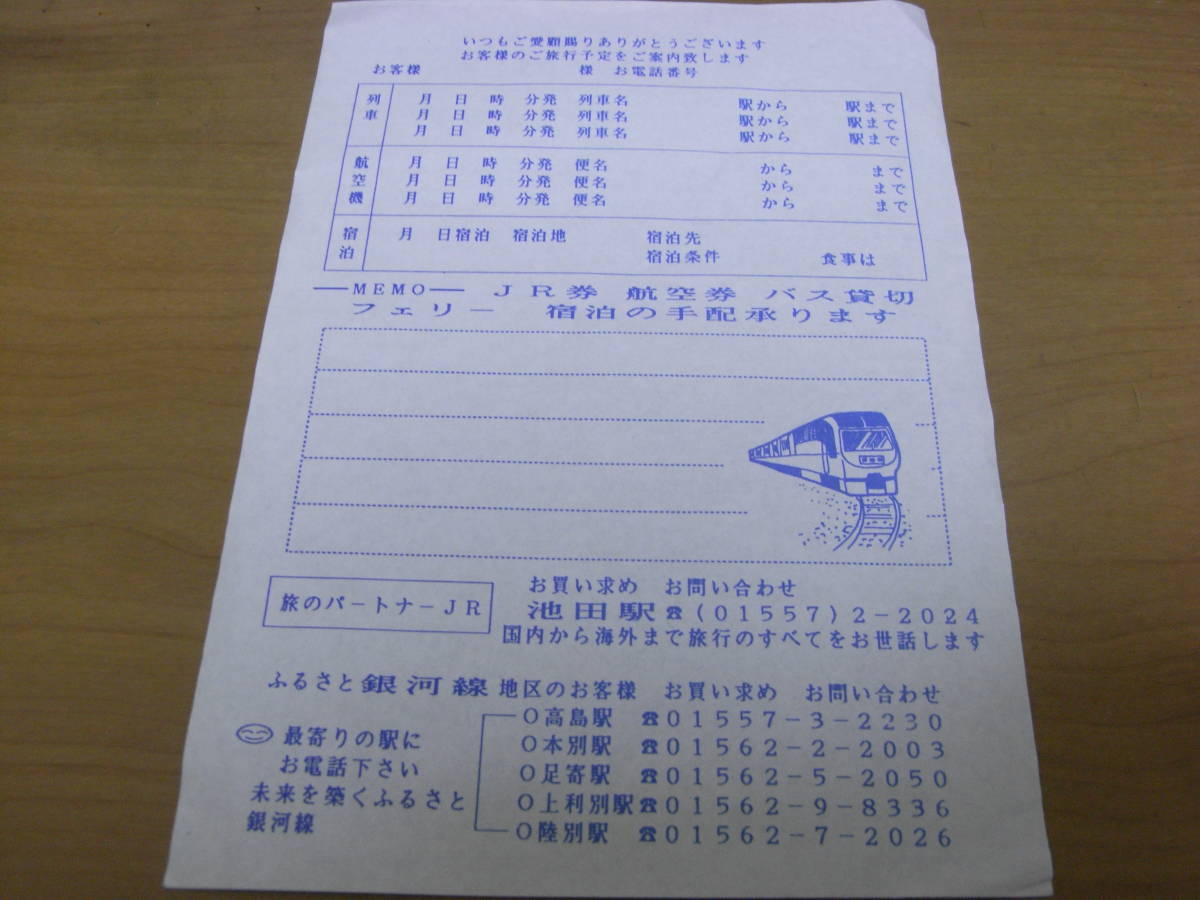 いつもご愛顧賜りありがとうございます
お客様のご旅行予定をご案内致します
お客様 様 お電話番号
列車 月 日 時 分発 列車名 駅から 駅まで
月 日 時 分発 列車名 駅から 駅まで
月 日 時 分発 列車名 駅から 駅まで
航空機 月 日 時 分発 便名 から まで
月 日 時 分発 便名 から まで
月 日 時 分発 便名 から まで
宿泊 月 日宿泊 宿泊地 宿泊先
宿泊条件 食事は
MEMO JR券 航空券 バス貸切
フェリー 宿泊の手配承ります
旅のパートナーJR
お買い求め お問い合わせ
池田駅☎(01557)2-2024
国内から海外まで旅行のすべてをお世話します
ふるさと銀河線地区のお客様 お買い求め お問い合わせ
最寄りの駅に
お電話下さい
未来を築くふるさと
銀河線
○高島駅 ☎01557-3-2230
○本別駅 ☎01562-2-2003
○足寄駅 ☎01562-5-2050
○上利別駅☎01562-9-8336
○陸別駅 ☎01562-7-2026